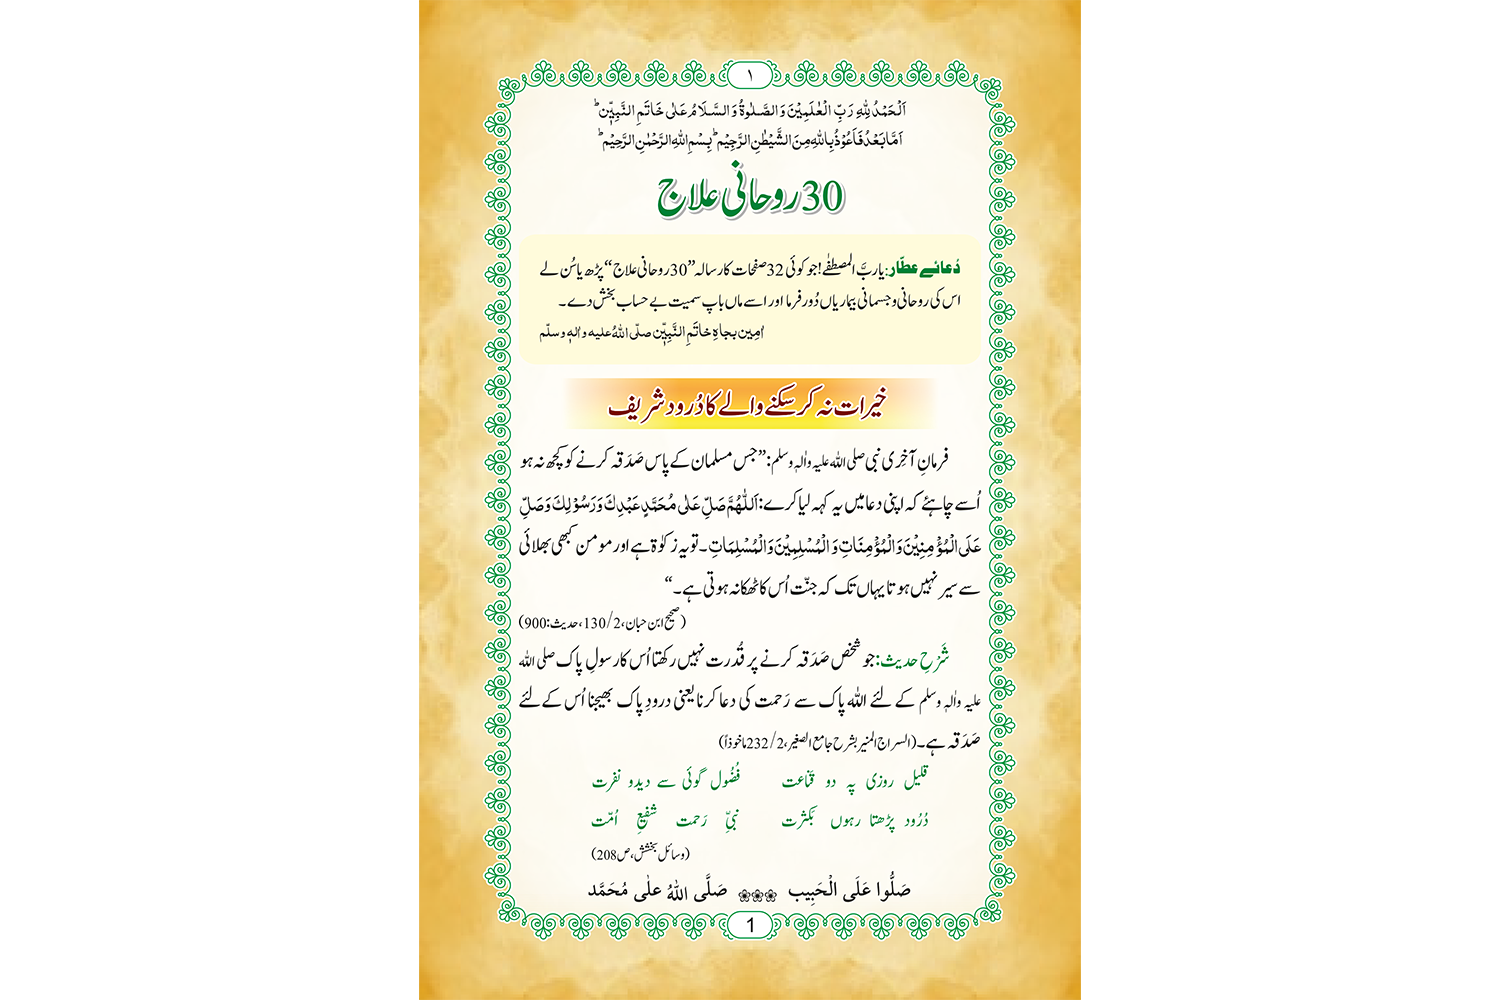 ۱
اَلْحَمْدُ لِلّٰہِ رَبِّ الْعٰلَمِیْنَ وَالصَّلٰوۃُ وَالسَّلَامُ عَلٰی خَاتَمِ النَّبِیّٖن ؕ
اَمَّا بَعْدُ فَاَعُوْذُ بِاللّٰہِ مِنَ الشَّیْطٰنِ الرَّجِیْمِ ؕ بِسْمِ اللّٰہِ الرَّحْمٰنِ الرَّحِیْمِ ؕ
30 روحانی علاج
دُعائے عطّار: یاربَّ المصطفٰے! جو کوئی 32 صفحات کا رسالہ ”30 روحانی علاج“ پڑھ یا سُن لے
اس کی روحانی و جسمانی بیماریاں دُور فرما اور اسے ماں باپ سمیت بے حساب بخش دے ۔
اٰمِین بجاہِ خاتَمِ النَّبِیّٖن صلّی اللہُ علیہ واٰلہٖ وسلّم
خیرات نہ کر سکنے والے کا دُرود شریف
فرمانِ آخِری نبی صلی اللہ علیہ واٰلہٖ وسلم: ”جس مسلمان کے پاس صَدَقہ کرنے کو کچھ نہ ہو
اُسے چاہئے کہ اپنی دعا میں یہ کہہ لیا کرے: اَللّٰھُمَّ صَلِّ عَلٰی مُحَمَّدٍ عَبْدِكَ وَرَسُوْلِكَ وَصَلِّ
عَلَی الْمُؤْمِنِیْنَ وَالْمُؤْمِنَاتِ وَالْمُسْلِمِیْنَ وَالْمُسْلِمَاتِ ۔ تو یہ زکوٰۃ ہے اور مومن کبھی بھلائی
سے سیر نہیں ہوتا یہاں تک کہ جنّت اُس کا ٹھکانہ ہوتی ہے ۔“
(صحیح ابن حبان، 2/130، حدیث:900)
شَرْحِ حدیث: جو شخص صَدَقہ کرنے پر قُدرت نہیں رکھتا اُس کا رسولِ پاک صلی اللہ
علیہ واٰلہٖ وسلم کے لئے اللہ پاک سے رَحمت کی دعا کرنا یعنی درودِ پاک بھیجنا اُس کے لئے
صَدَقہ ہے ۔ (السراج المنیر بشرح جامع الصغیر، 2/232 ماخوذاً)
قلیل روزی پہ دو قناعت فُضُول گوئی سے دیدو نفرت
دُرُود پڑھتا رہوں بَکثرت نبیِّ رَحمت شفیعِ اُمّت
(وسائلِ بخشش، ص208)
صَلُّوا عَلَی الْحَبِیب ❀❀❀ صَلَّی اللہُ علٰی مُحَمَّد
1